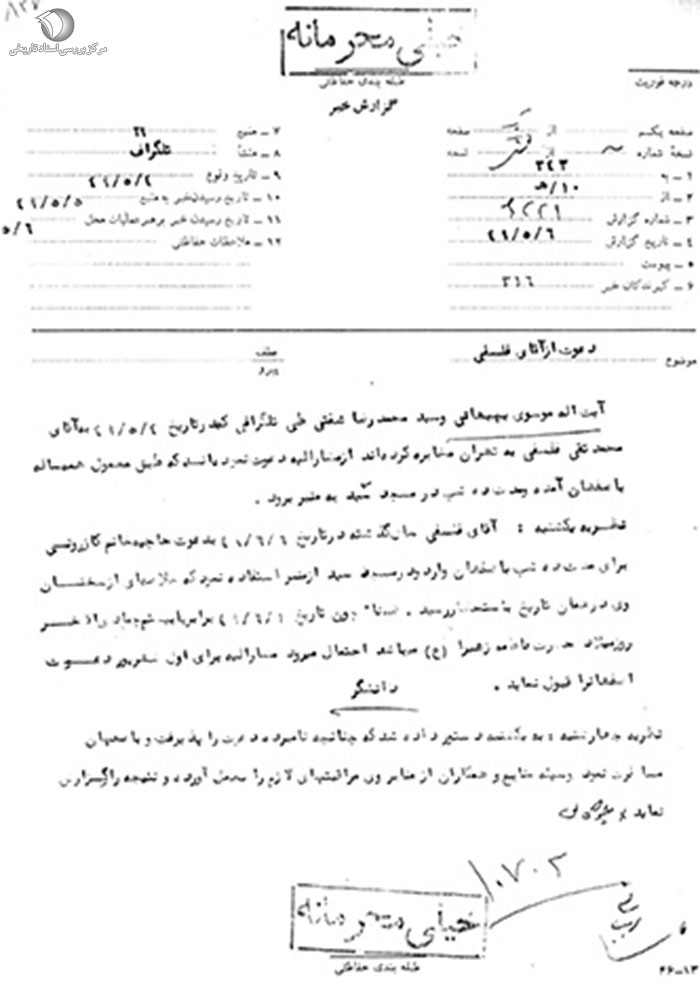 مرکز بررسی اسناد تاریخی
خیلی محرمانه
طبقه بندی حفاظتی
درجه فوریت
گزارش خبر
صفحه یکم از صفحه
نسخهٔ شماره از نسخه
۱ ـ به ۳۴۳
۲ ـ از ۱۰/هـ
۳ ـ شماره گزارش
۴ ـ تاریخ گزارش ۴۱/۵/۶
۵ ـ پیوست
۶ ـ گیرندگان خبر ۳۱۶
۷ ـ منبع
۸ ـ منشأ تلگراف
۹ ـ تاریخ وقوع ۴۱/۵/۲
۱۰ ـ تاریخ رسیدن خبر به منبع ۴۱/۵/۵
۱۱ ـ تاریخ رسیدن خبر به رهبر عملیات محل ۵/۶
۱۲ ـ ملاحظات حفاظتی
موضوع دعوت از آقای فلسفی
عطف
پیرو
آیت اله موسوی بهبهانی وسید محمدرضا شفتی طی تلگرافی که در تاریخ ۴۱/۵/۲ به آقای
محمد تقی فلسفی به تهران مخابره کرده اند از مشارالیه دعوت نموده بانند که طبق معمول همه ساله
باصفهان آمده ومدت ده شب در مسجد سید به منبر برود .
نظریه یکشنبه : آقای فلسفی سال گذشته در تاریخ بدعوت حاجیه خانم کازرونی
برای مدت ده شب باصفهان وارد و در مسجد سید از منبر استفاده نمود که خلاصه ای از سخنان
وی در همان تاریخ باستحضار رسید . ضمنا" چون تاریخ برابر با بیستم جمادی الاخر
روز میلاد حضرت فاطمه زهرا (ع) میباشد احتمال میرود مشارالیه برای اول شهریور دعوت
اصفهان را قبول نماید . دانشگر
نظریه چهارشنبه : به یکشنبه دستور داده شد که چنانچه نامبرده دعوت را پذیرفت و باصفهان
مسافرت نمود وسیله منابع و همکاران از منابر وی مراقبتهای لازم را بعمل آورده و نتیجه را گزارش
نماید
۱۰۷۰۲
خیلی محرمانه
طبقه بندی حفاظتی
۲۶-۱۳